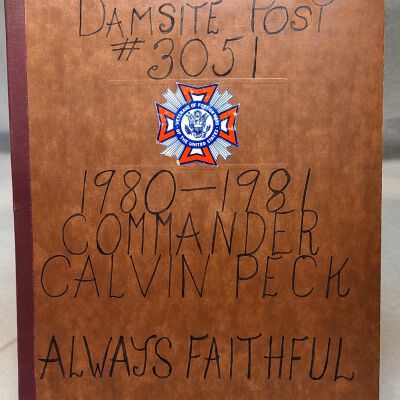 DAMSITE POST
#3051
VETERANS OF FOREIGN WARS
OF THE UNITED STATES
1980-1981
COMMANDER
CALVIN PECK
ALWAYS FAITHFUL